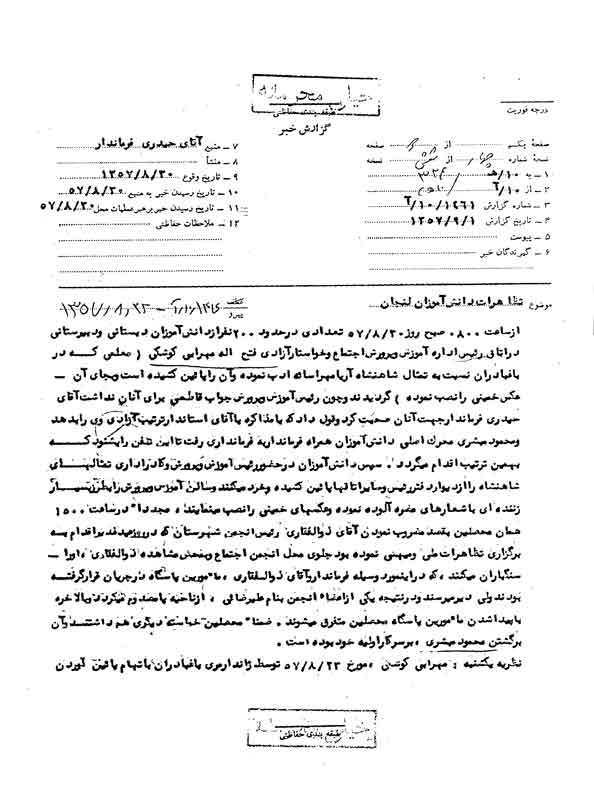 خیلی محرمانه
طبقه بندی حفاظتی
گزارش خبر
درجه فوریت
صفحهٔ یکم از صفحه
نسخهٔ شماره چهار از شش نسخه
۱ ــ به ۱۰/هـ ۳۴۰
۲ ــ از ۱۰/آ
۳ ــ شماره گزارش ۱۰/۱۴۶۱/آ
۴ ــ تاریخ گزارش ۱۳۵۷/۹/۱
۵ ــ پیوست
۶ ــ گیرندگان خبر
۷ ــ منبع آقای حیدری فرماندار
۸ ــ منشأ
۹ ــ تاریخ وقوع ۱۳۵۷/۸/۳۰
۱۰ ــ تاریخ رسیدن خبر به منبع ۵۷/۸/۳۰
۱۱ ــ تاریخ رسیدن خبر برهبر عملیات محل ۵۷/۸/۳۰
۱۲ ــ ملاحظات حفاظتی
موضوع تظاهرات دانش آموزان لنجان
پیرو
ازساعت ۰۸۰۰ صبح روز ۵۷/۸/۳۰ تعدادی درحدود ۲۰۰ نفرازدانش آموزان دبستانی ودبیرستانی
دراتاق رئیس اداره آموزش وپرورش اجتماع وخواستارآزادی فتح اله مهرابی کوشکی ( معلمی کـه در
باغبادران نسبت به تمثال شاهنشاه آریامهراسائه ادب نموده وآن راپائین کشیده است وبجای آن ــ
عکس خمینی رانصب نموده ) گردیدند وچون رئیس آموزش وپرورش جواب قاطعی برای آنان نداشت آقای
حیدری فرماندارجهت آنان صحبت کرد وقول داد که بامذاکره باآقای استاندارترتیب آزادی وی رابدهد
ومحمود مبشری محرک اصلی دانش آموزان همراه فرماندار به فرمانداری رفت تا این تلفن رابشنود کــه
بهمین ترتیب اقدام میگردد. سپس دانش آموزان درحضوررئیس آموزش وپرورش وکادراداری تمثالهــای
شاهنشاه راازدیوارد فتررئیس وسایراتاقهاپائین کشیده وخرد میکنند وسالن آموزش وپرورش رابطرزبسیــار
زننده ای باشعارهای مضره آلوده نموده وعکسهای خمینی رانصب مینمایند، مجددا" درساعت ۱۵۰۰
همان محصلین بقصد مضروب نمودن آقای ذوالفقاری رئیس انجمن شهرستان که درروزعیدغدیراقدام بــه
برگزاری تظاهرات ملی ومیهنی نموده بود جلوی محل انجمن اجتماع وبمحض مشاهده ذوالفقاری اورا ــ
سنگباران میکنند، که دراینمورد وسیله فرمانداروآقای ذوالفقاری مامورین پاسگاه درجریان قرارگرفتـه
بودند ولی دیرمیرسند ودرنتیجه یکی ازاعضاء انجمن بنام علیرضائی ازناحیه پامصدوم میگردد وبالاخره
باپیداشدن مامورین پاسگاه محصلین متفرق میشوند. ضمنا" محصلین خواسته دیگری هم داشتنـد وآن
برگشتن محمود مبشری برسرکاراولیه خود بوده است .
نظریه یکشنبه : مهرابی کوشکی مورخ ۵۷/۸/۲۳ توسط ژاندارمری باغبادران باتهام پائین آوردن
طبقه بندی حفاظتی